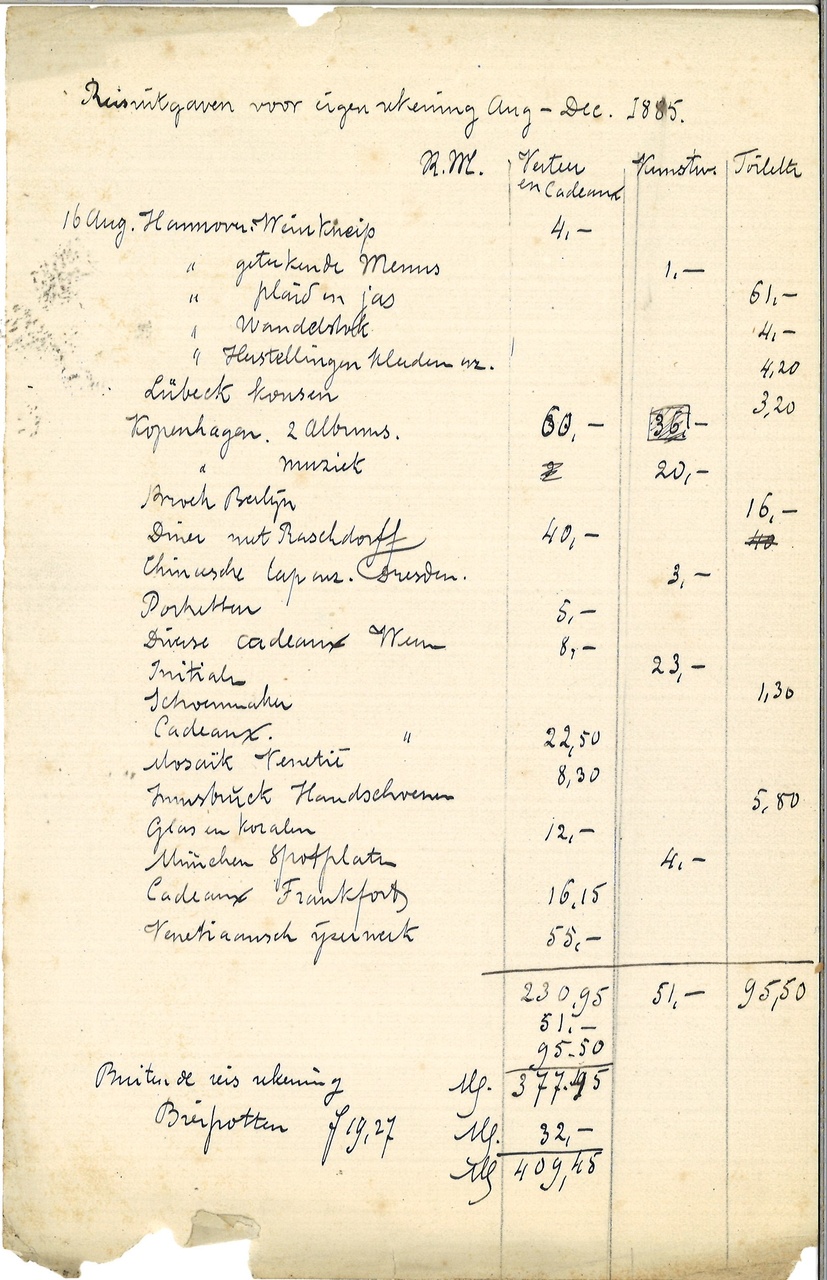 Reisuitgaven voor eigen rekening Aug – Dec. 1885.
R.M. Verteer en Cadeaux Kunstw. Toilette
16 Aug. Hannover. Weinkneip 4,–
" getekende Menus 1.–
" plaid en jas 61,–
" Wandelstok 4,–
" Herstellingen kleeden enz. 4,20
Lübeck 3,20
Kopenhagen. 2 Albums. 60,– 36,–
" muziek 20,–
Broch Berlijn 16,–
Diner met Raschdorff 40,– 40
Chineesche lap enz. Dresden. 3,–
Portretten 5,–
Diverse cadeaux Ween 8,–
Initialen 23,–
Schoenmaker 1,30
Cadeaux. " 22,50
Mosaïk Venetië 8,30
Innsbrück Handschoenen 5,80
Glas en koralen 12,–
München Spotplaten 4,–
Cadeaux Frankfort 16,15
Venetiaansch ijzerwerk 55,–
230,95 51,– 95,50
51.–
95.50
Buiten de reis rekening M. 377.45
Bierpotten f 19,27 M. 32,–
M 409,45